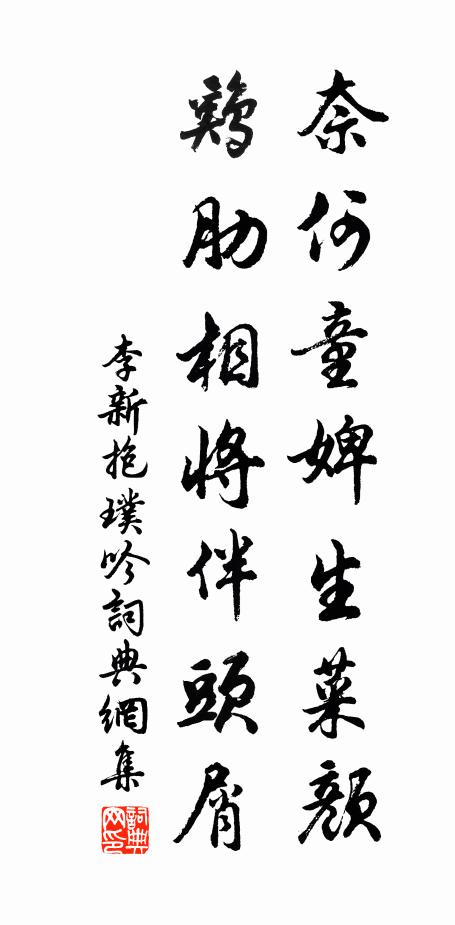 奈何童婢生菜顔
鷄肋相將伴頭屑
李新抱璞吟詞典網集
詞典網印